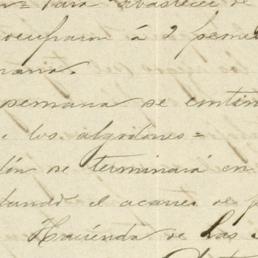 para abastecer de
ocuparon á 2 peones
semana se contin
los algodones =
se terminará en
el acarreo de p
Hacienda de las